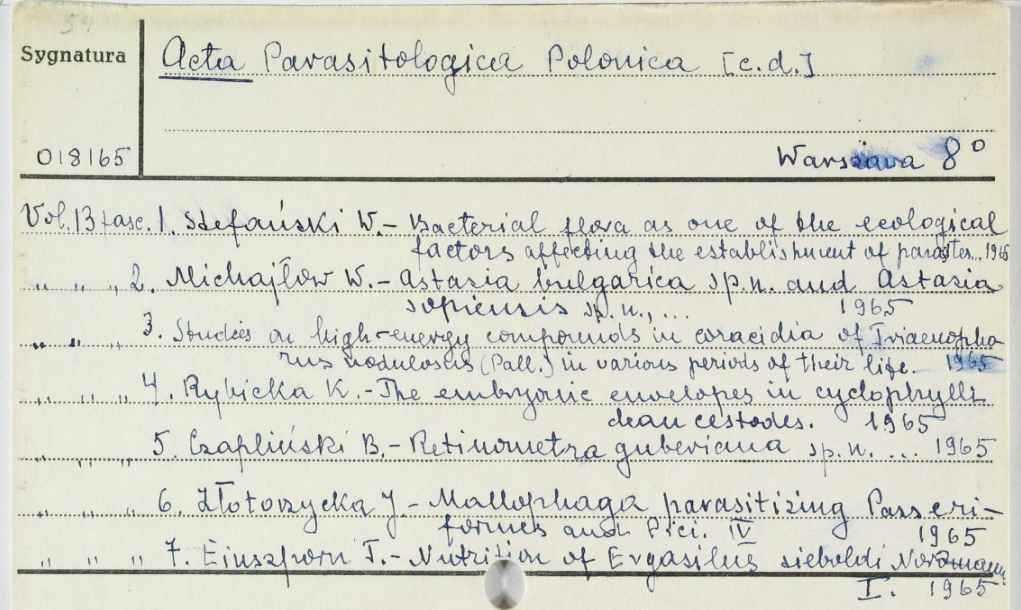 Sygnatura
Acta Parasitologica Polonica [c.d.]
018165
Warszawa 8°
Vol. 13 fasc. 1. Stefański W. – Bacterial flora as one of the ecological
factors affecting the establishment of parasites.. 1965
" " " 2. Michajłow W. – Astasia bulgarica sp. n. and Astasia
sopiensis sp. n., ... 1965
" " " 3. Studies on high-energy compounds in coracidia of Triaenopho
rus nodulosus (Pall.) in various periods of their life. 1965
" " " 4. Rybicka K. – The embryonic envelopes in cyclophylli
dean cestodes. 1965
" " " 5. Czapliński B. – Retinometra guberiana sp. n. ... 1965
" " " 6. Złotorzycka J. – Mallophaga parasitizing Passeri-
formes and Pici. IV 1965
" " " 7. Einszporn T. – Nutrition of Ergasilus sieboldi Nordmann
I. 1965